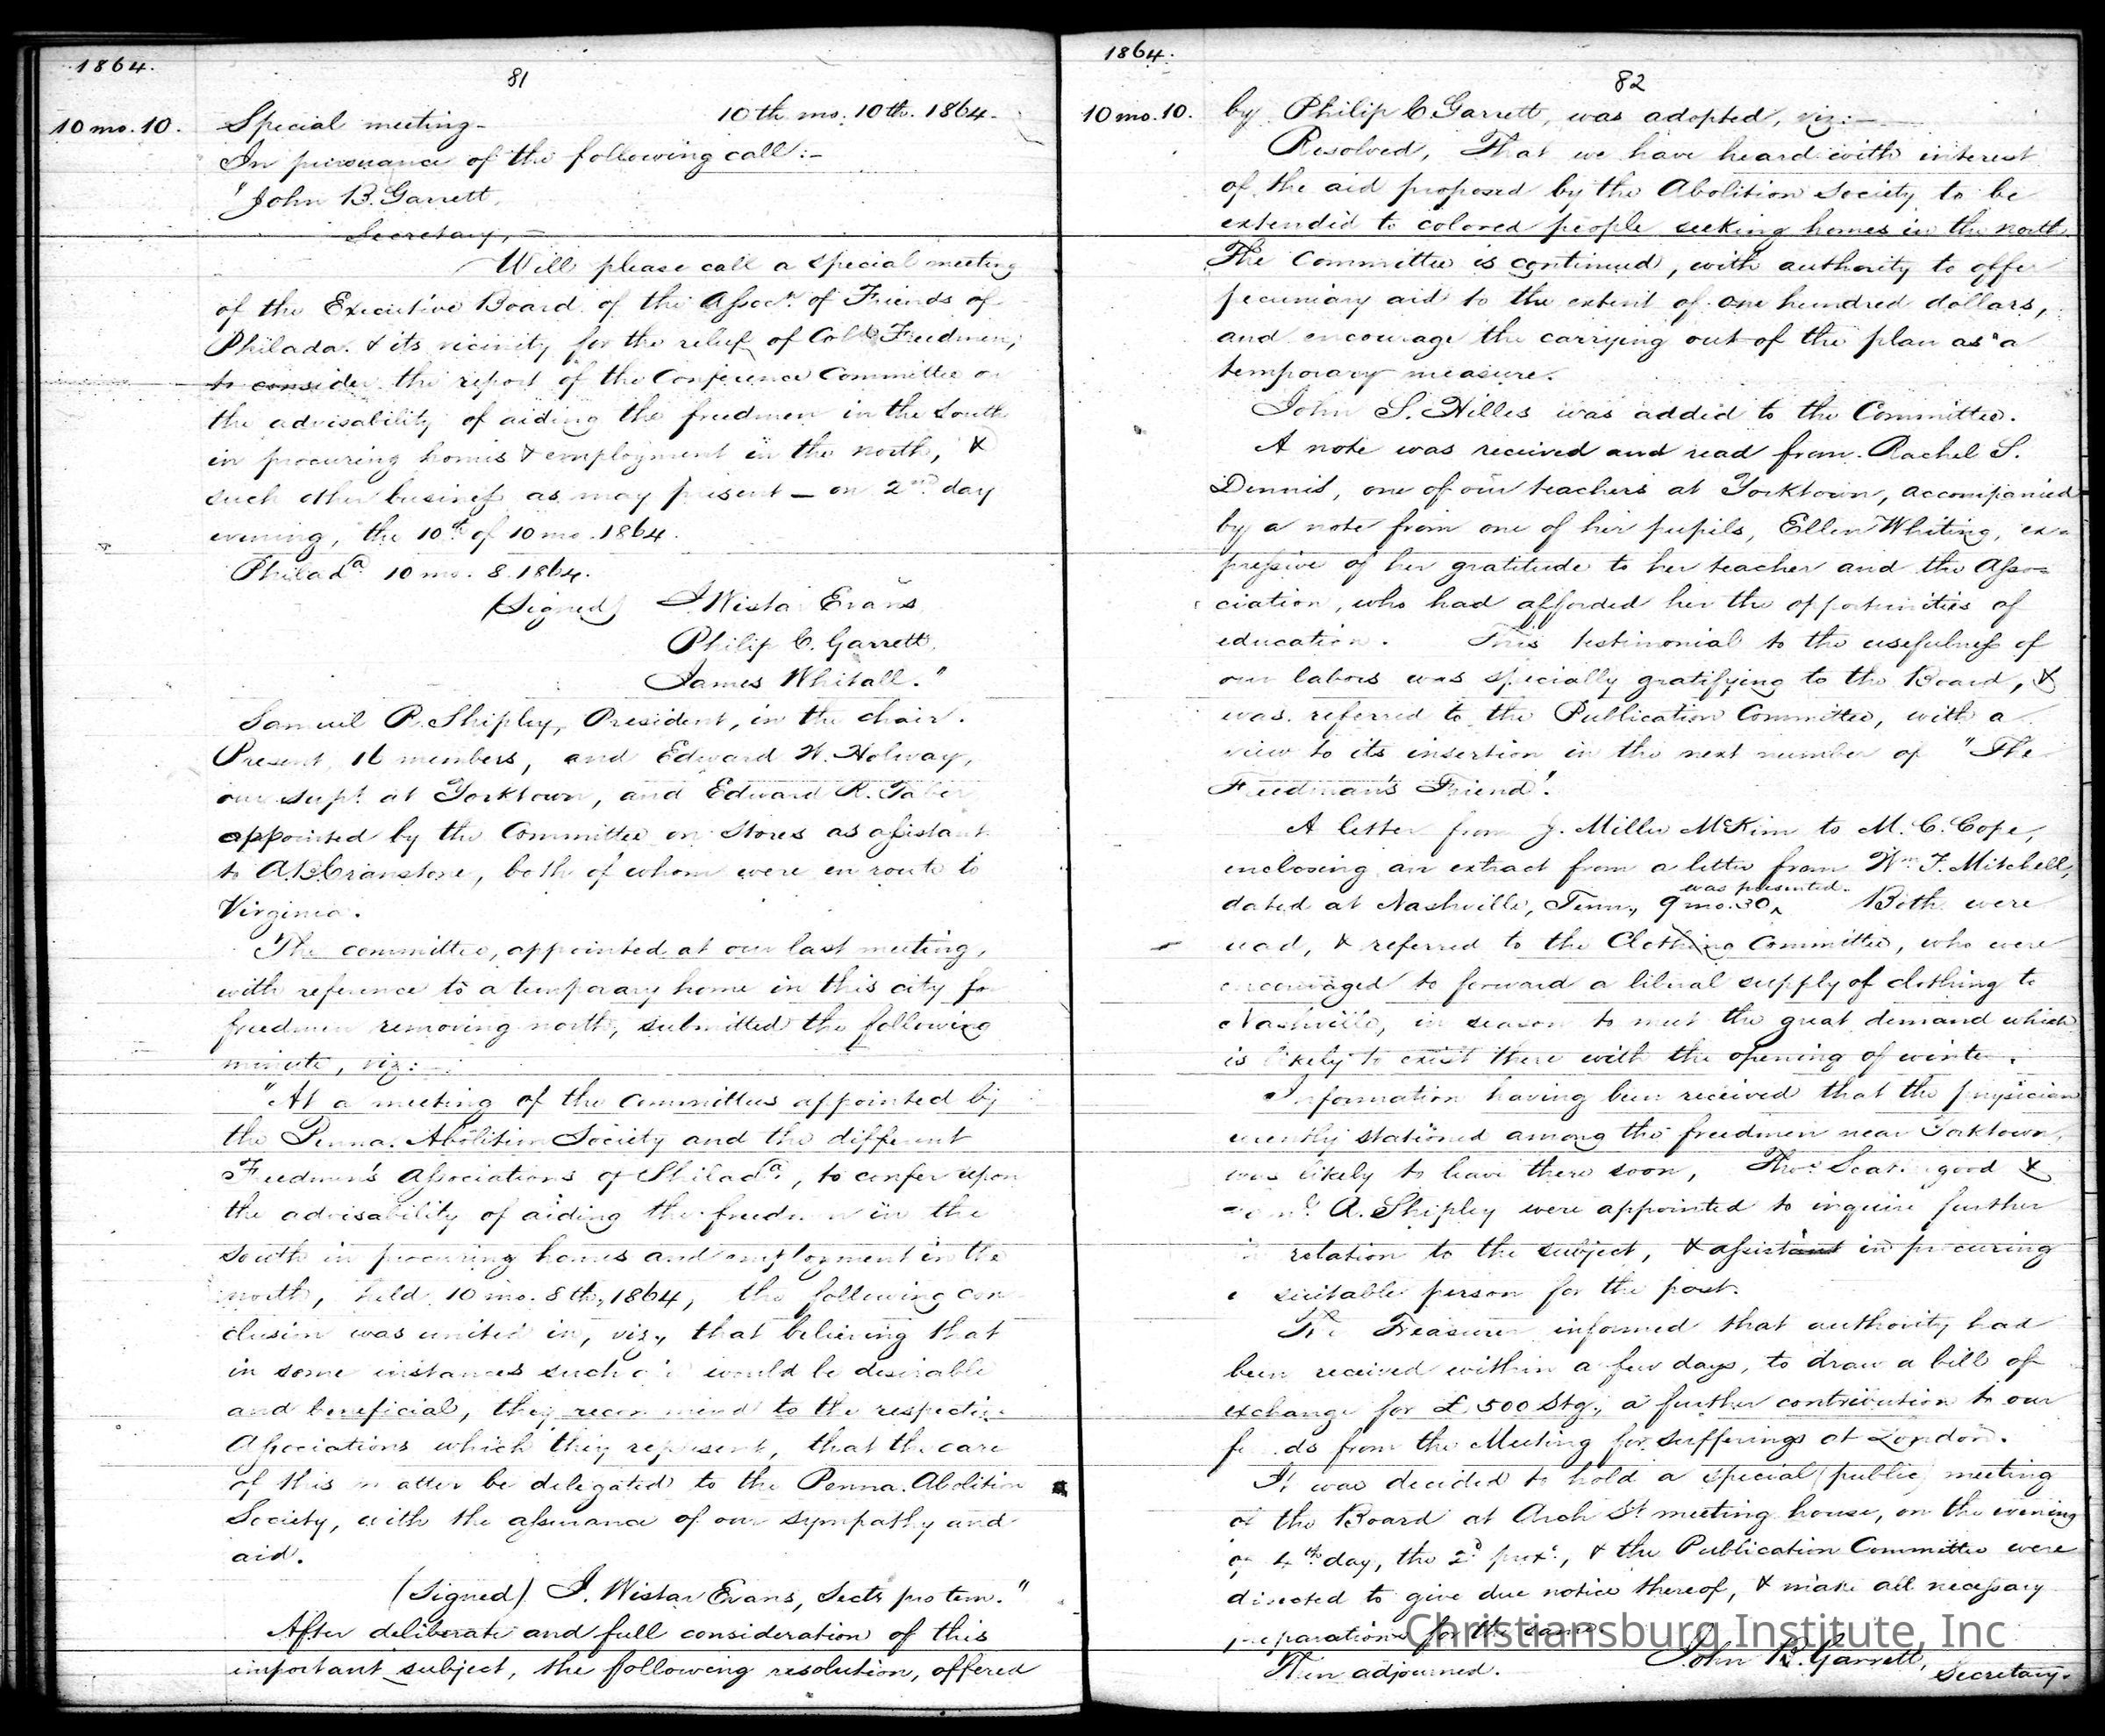 1864.
81
10 mo. 10.
Special meeting- 10th mo. 10th. 1864.
In pursuance of the following call:-
"John B. Garrett,
Secretary,-
Will please call a special meeting
of the Executive Board of the Assocn. of Friends of
Philada. & its vicinity for the relief of Cold. Freedmen,
to consider the report of the Conference Committee on
the advisability of aiding the freedmen in the South
in procuring homes & employment in the north, &
such other business as may present - on 2nd day
evening, the 10th of 10 mo. 1864.
Philada. 10 mo. 8. 1864.
(Signed) J. Wistar Evans
Philip C. Garrett,
James Whitall."
Samuel R. Shipley, President, in the chair.
Present, 16 members, and Edward W. Holway,
our Supt. at Yorktown, and Edward R. Taber
appointed by the Committee on Stores as assistant
to A.B. Cranstone, both of whom were en route to
Virginia.
The committee, appointed at our last meeting,
with reference to a temporary home in this city for
freedmen removing north, submitted the following
minute, viz:-
"At a meeting of the Committees appointed by
the Penna. Abolition Society and the different
Freedmen's Associations of Philada., to confer upon
the advisability of aiding the freedmen in the
South in procuring homes and employment in the
north, held 10 mo. 8th, 1864, the following con
clusion was united in, viz., that believing that
in some instances such aid would be desirable
and beneficial, they recommend to the respective
Associations which they represent, that the care
of this matter be delegated to the Penna. Abolition
Society, with the assurance of our sympathy and
aid.
(Signed) J. Wistar Evans, Secty pro tem."
After deliberate and full consideration of this
important subject, the following resolution, offered
1864.
82
10 mo. 10.
by Philip C. Garrett, was adopted, viz:-
Resolved, That we have heard with interest
of the aid proposed by the Abolition Society to be
extended to colored people seeking homes in the north.
The Committee is continued, with authority to offer
pecuniary aid to the extent of one hundred dollars,
and encourage the carrying out of the plan as a
temporary measure.
John S. Hilles was added to the Committee.
A note was received and read from Rachel S.
Dennis, one of our teachers at Yorktown, accompanied
by a note from one of her pupils, Ellen Whiting, ex-
pressive of her gratitude to her teacher and the Asso-
ciation, who had afforded her the opportunities of
education. This testimonial to the usefulness of
our labors was specially gratifying to the Board, &
was referred to the Publication Committee, with a
view to its insertion in the next number of "The
Freedman's Friend".
A letter from J. Miller McKim to M. C. Cope,
enclosing an extract from a letter from Wm. F. Mitchell,
dated at Nashville, Tenn., 9 mo. 30, was presented. Both were
read, & referred to the Clothing Committee, who were
encouraged to forward a liberal supply of clothing to
Nashville, in season to meet the great demand which
is likely to exist there with the opening of winter.
Information having been received that the physician
recently stationed among the freedmen near Yorktown,
was likely to leave there soon, Thos. Scattergood &
A. Shipley were appointed to inquire further
in relation to the subject, & assist in procuring
a suitable person for the post.
The Treasurer informed that authority had
been received within a few days, to draw a bill of
exchange for £500 Stg., a further contribution to our
funds from the Meeting for Sufferings at London.
It was decided to hold a special (public) meeting
of the Board at Arch St. meeting house, on the evening
of 4th day, the 2d proxo., & the Publication Committee were
directed to give due notice thereof, & make all necessary
preparations for the same.
Then adjourned. John B. Garrett,
Secretary.
Christiansburg Institute, Inc